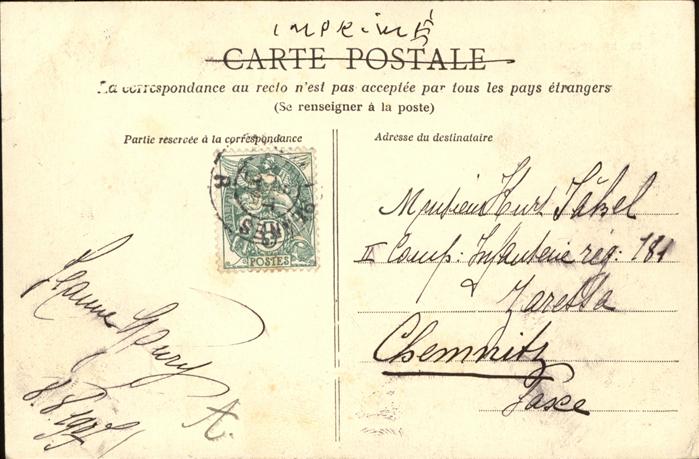 IMPRIMÉ
CARTE POSTALE
La correspondance au recto n'est pas acceptée par tous les pays étrangers
(Se renseigner à la poste)
Partie reservée à la correspondance
Adresse du destinataire
5
POSTES
Monsieur Kurt Täkel
II Comp: Infanterie rég: 181
Chemnitz
Saxe
Jeanne
8.8.1907
A.